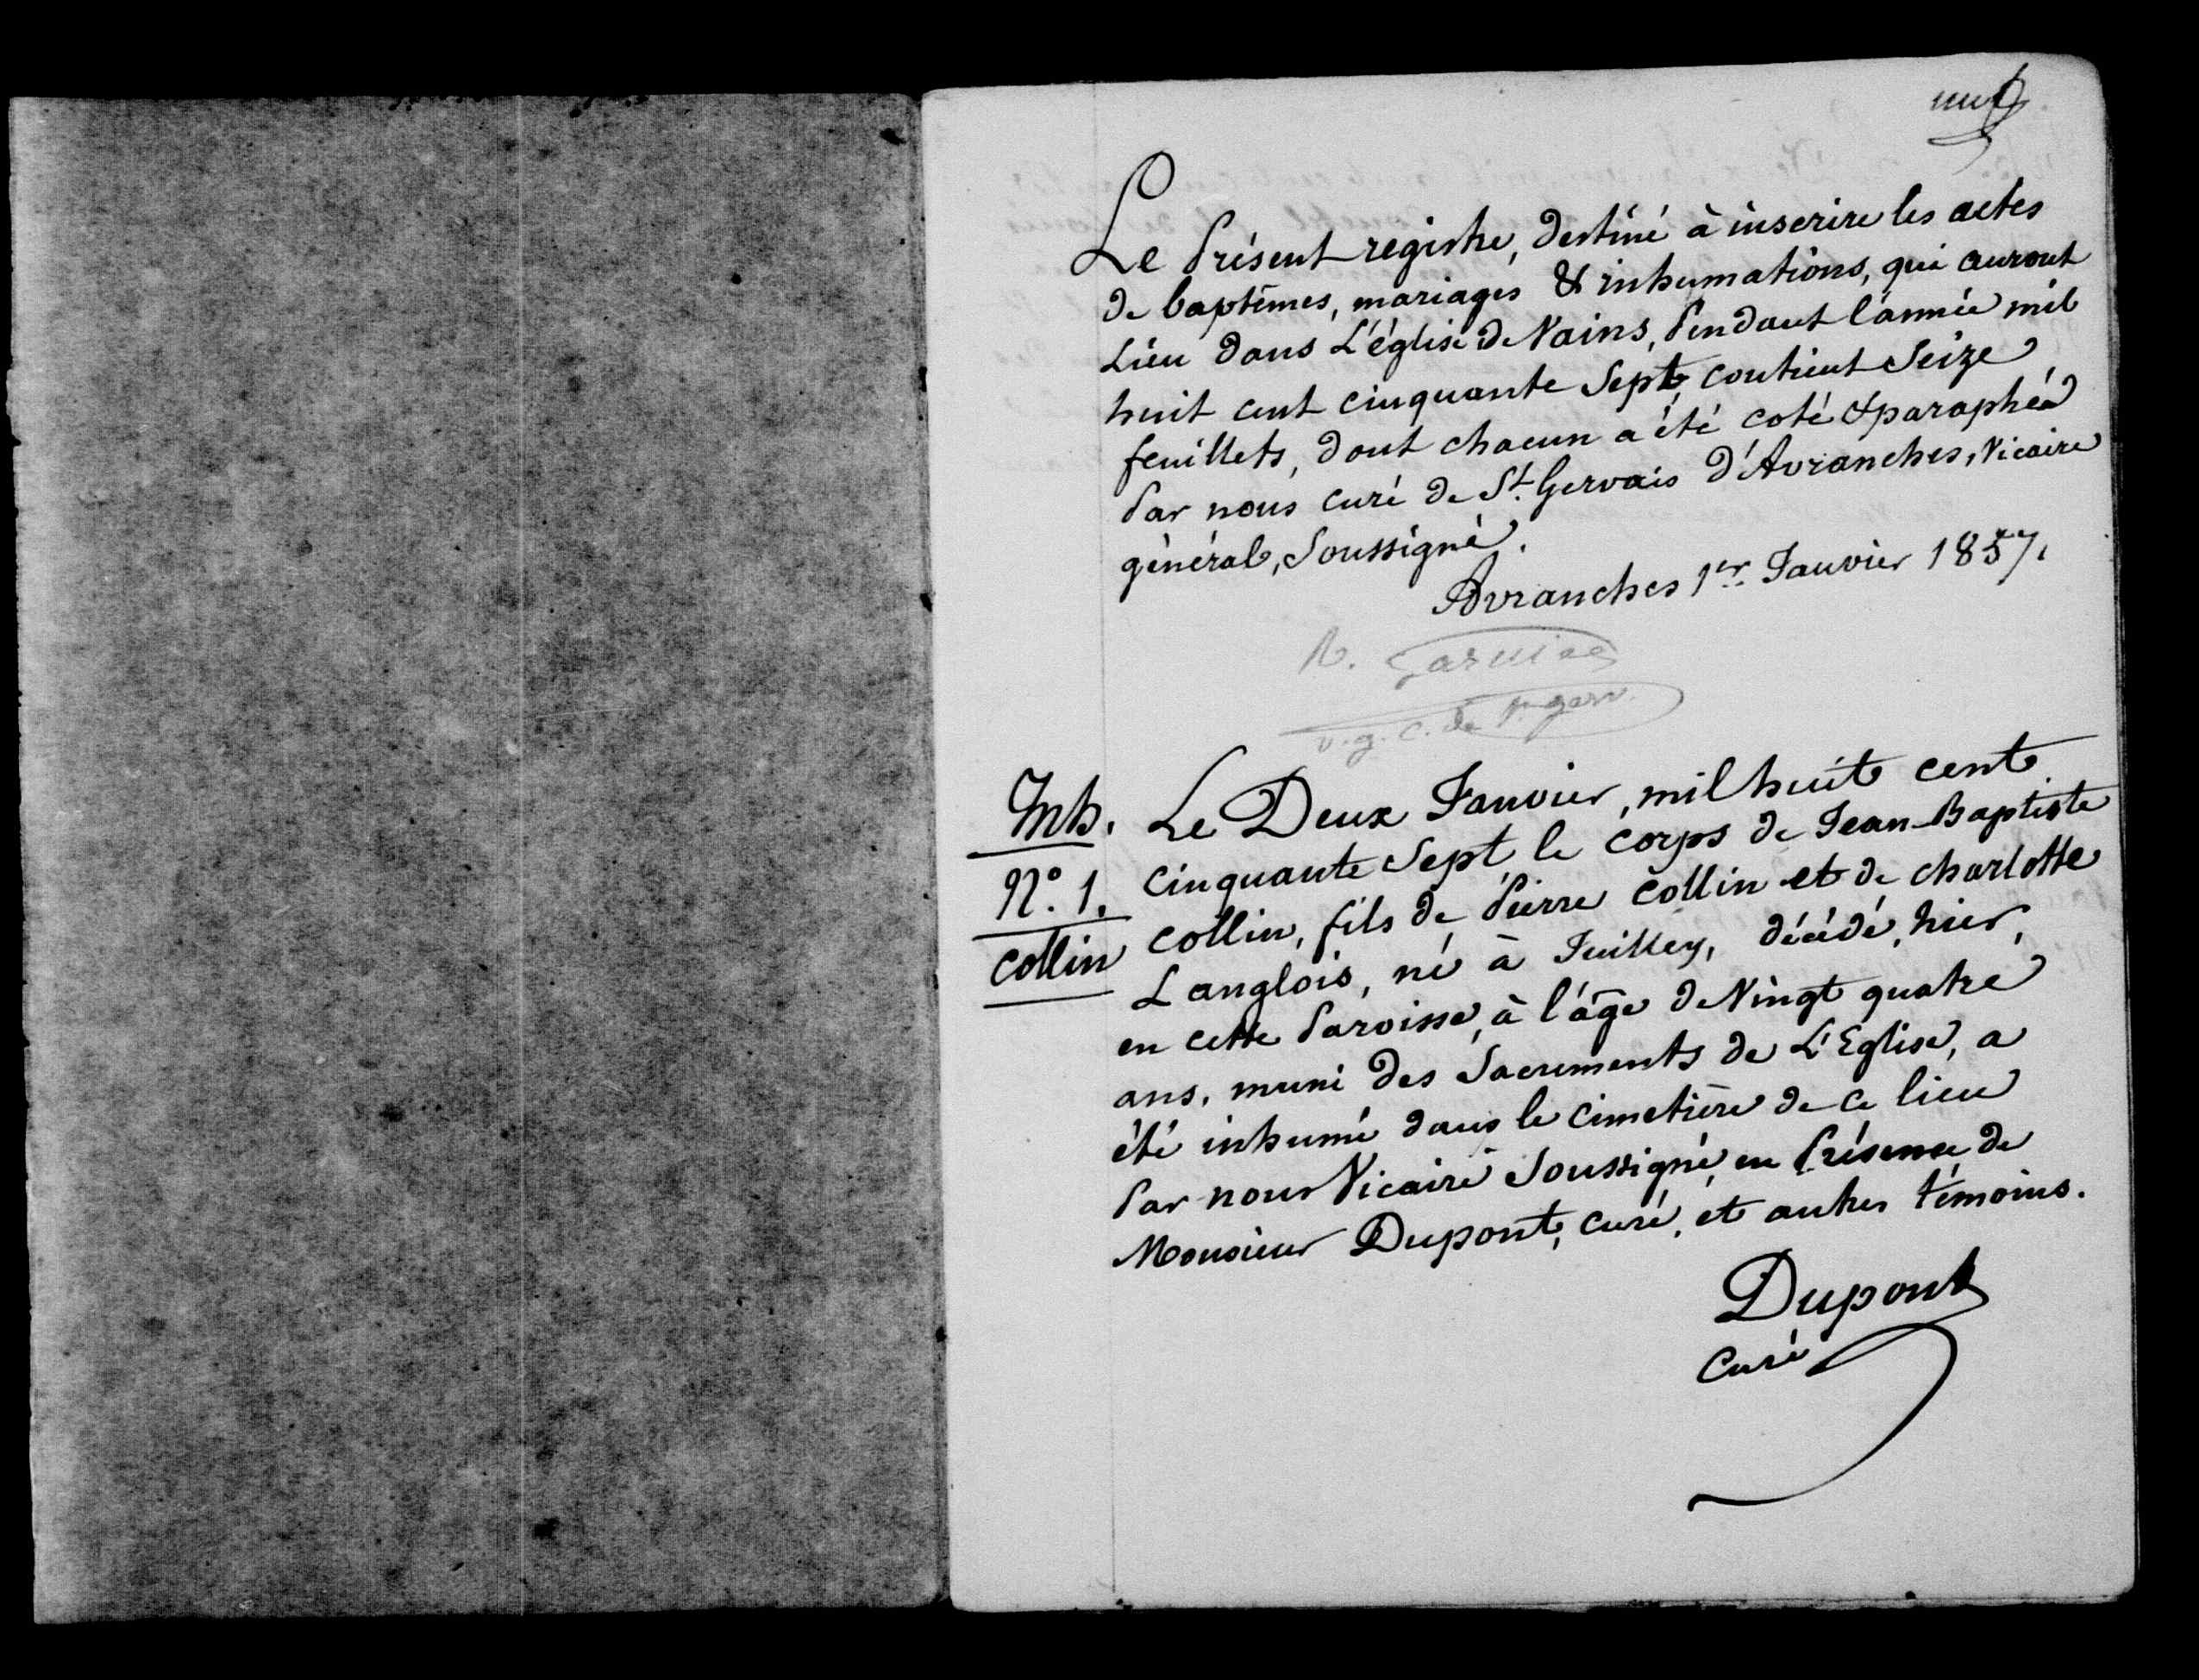 Le Présent registre, destiné à inscrire les actes
de baptêmes, mariages & inhumations, qui auront
Lieu dans L'église de Vains, Pendant l'année mil
huit cent cinquante Sept, contient Seize
feuillets, dont chacun a été coté & paraphé
Par nous curé de St. Gervais d'Avranches, Vicaire
général, Soussigné.
Avranches 1er Janvier 1857.
v. g. c. de
Inh.
N.º 1.
Collin
Le Deux Janvier, mil huit cent
cinquante Sept, le corps de Jean-Baptiste
Collin, fils de Pierre Collin et de charlotte
Langlois, né à Juilley, décédé, hier,
en cette Paroisse, à l'âge de Vingt quatre
ans, muni des Sacrements de L'Eglise, a
été inhumé dans le cimetière de ce lieu
Par nous Vicaire Soussigné, en Présence de
Monsieur Dupont, curé, et autres témoins.
Dupont
Curé